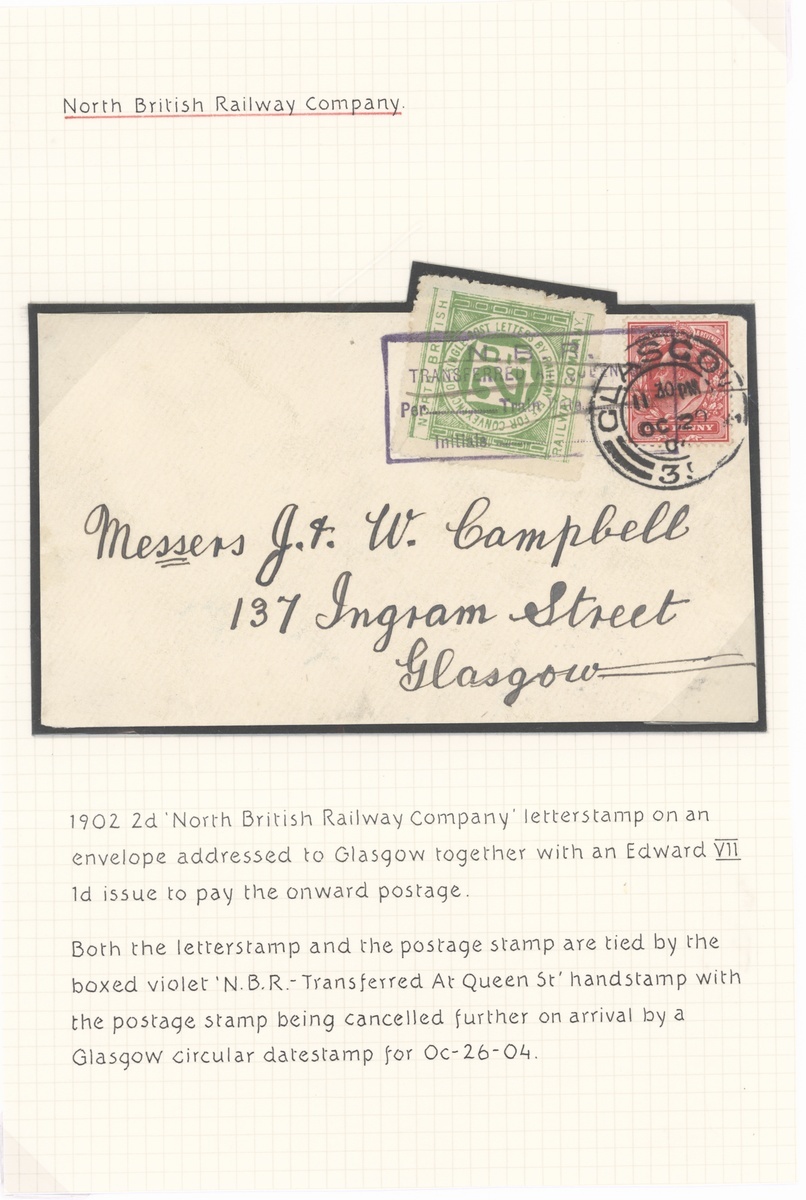 North British Railway Company.
NORTH BRITISH
RAILWAY COMPANY.
LETTERS BY RAILWAY
FOR CONVEYANCE OF SINGLE POST
2D
N. B. R.
TRANSFERRED
Per Train
Initials
GLASGOW
11 30 PM
OC 2
3
PENNY
Messers J. & W. Campbell
137 Ingram Street
Glasgow
1902 2d 'North British Railway Company' letterstamp on an
envelope addressed to Glasgow together with an Edward VII
1d issue to pay the onward postage.
Both the letterstamp and the postage stamp are tied by the
boxed violet 'N.B.R.- Transferred At Queen St' handstamp with
the postage stamp being cancelled further on arrival by a
Glasgow circular datestamp for Oc-26-04.